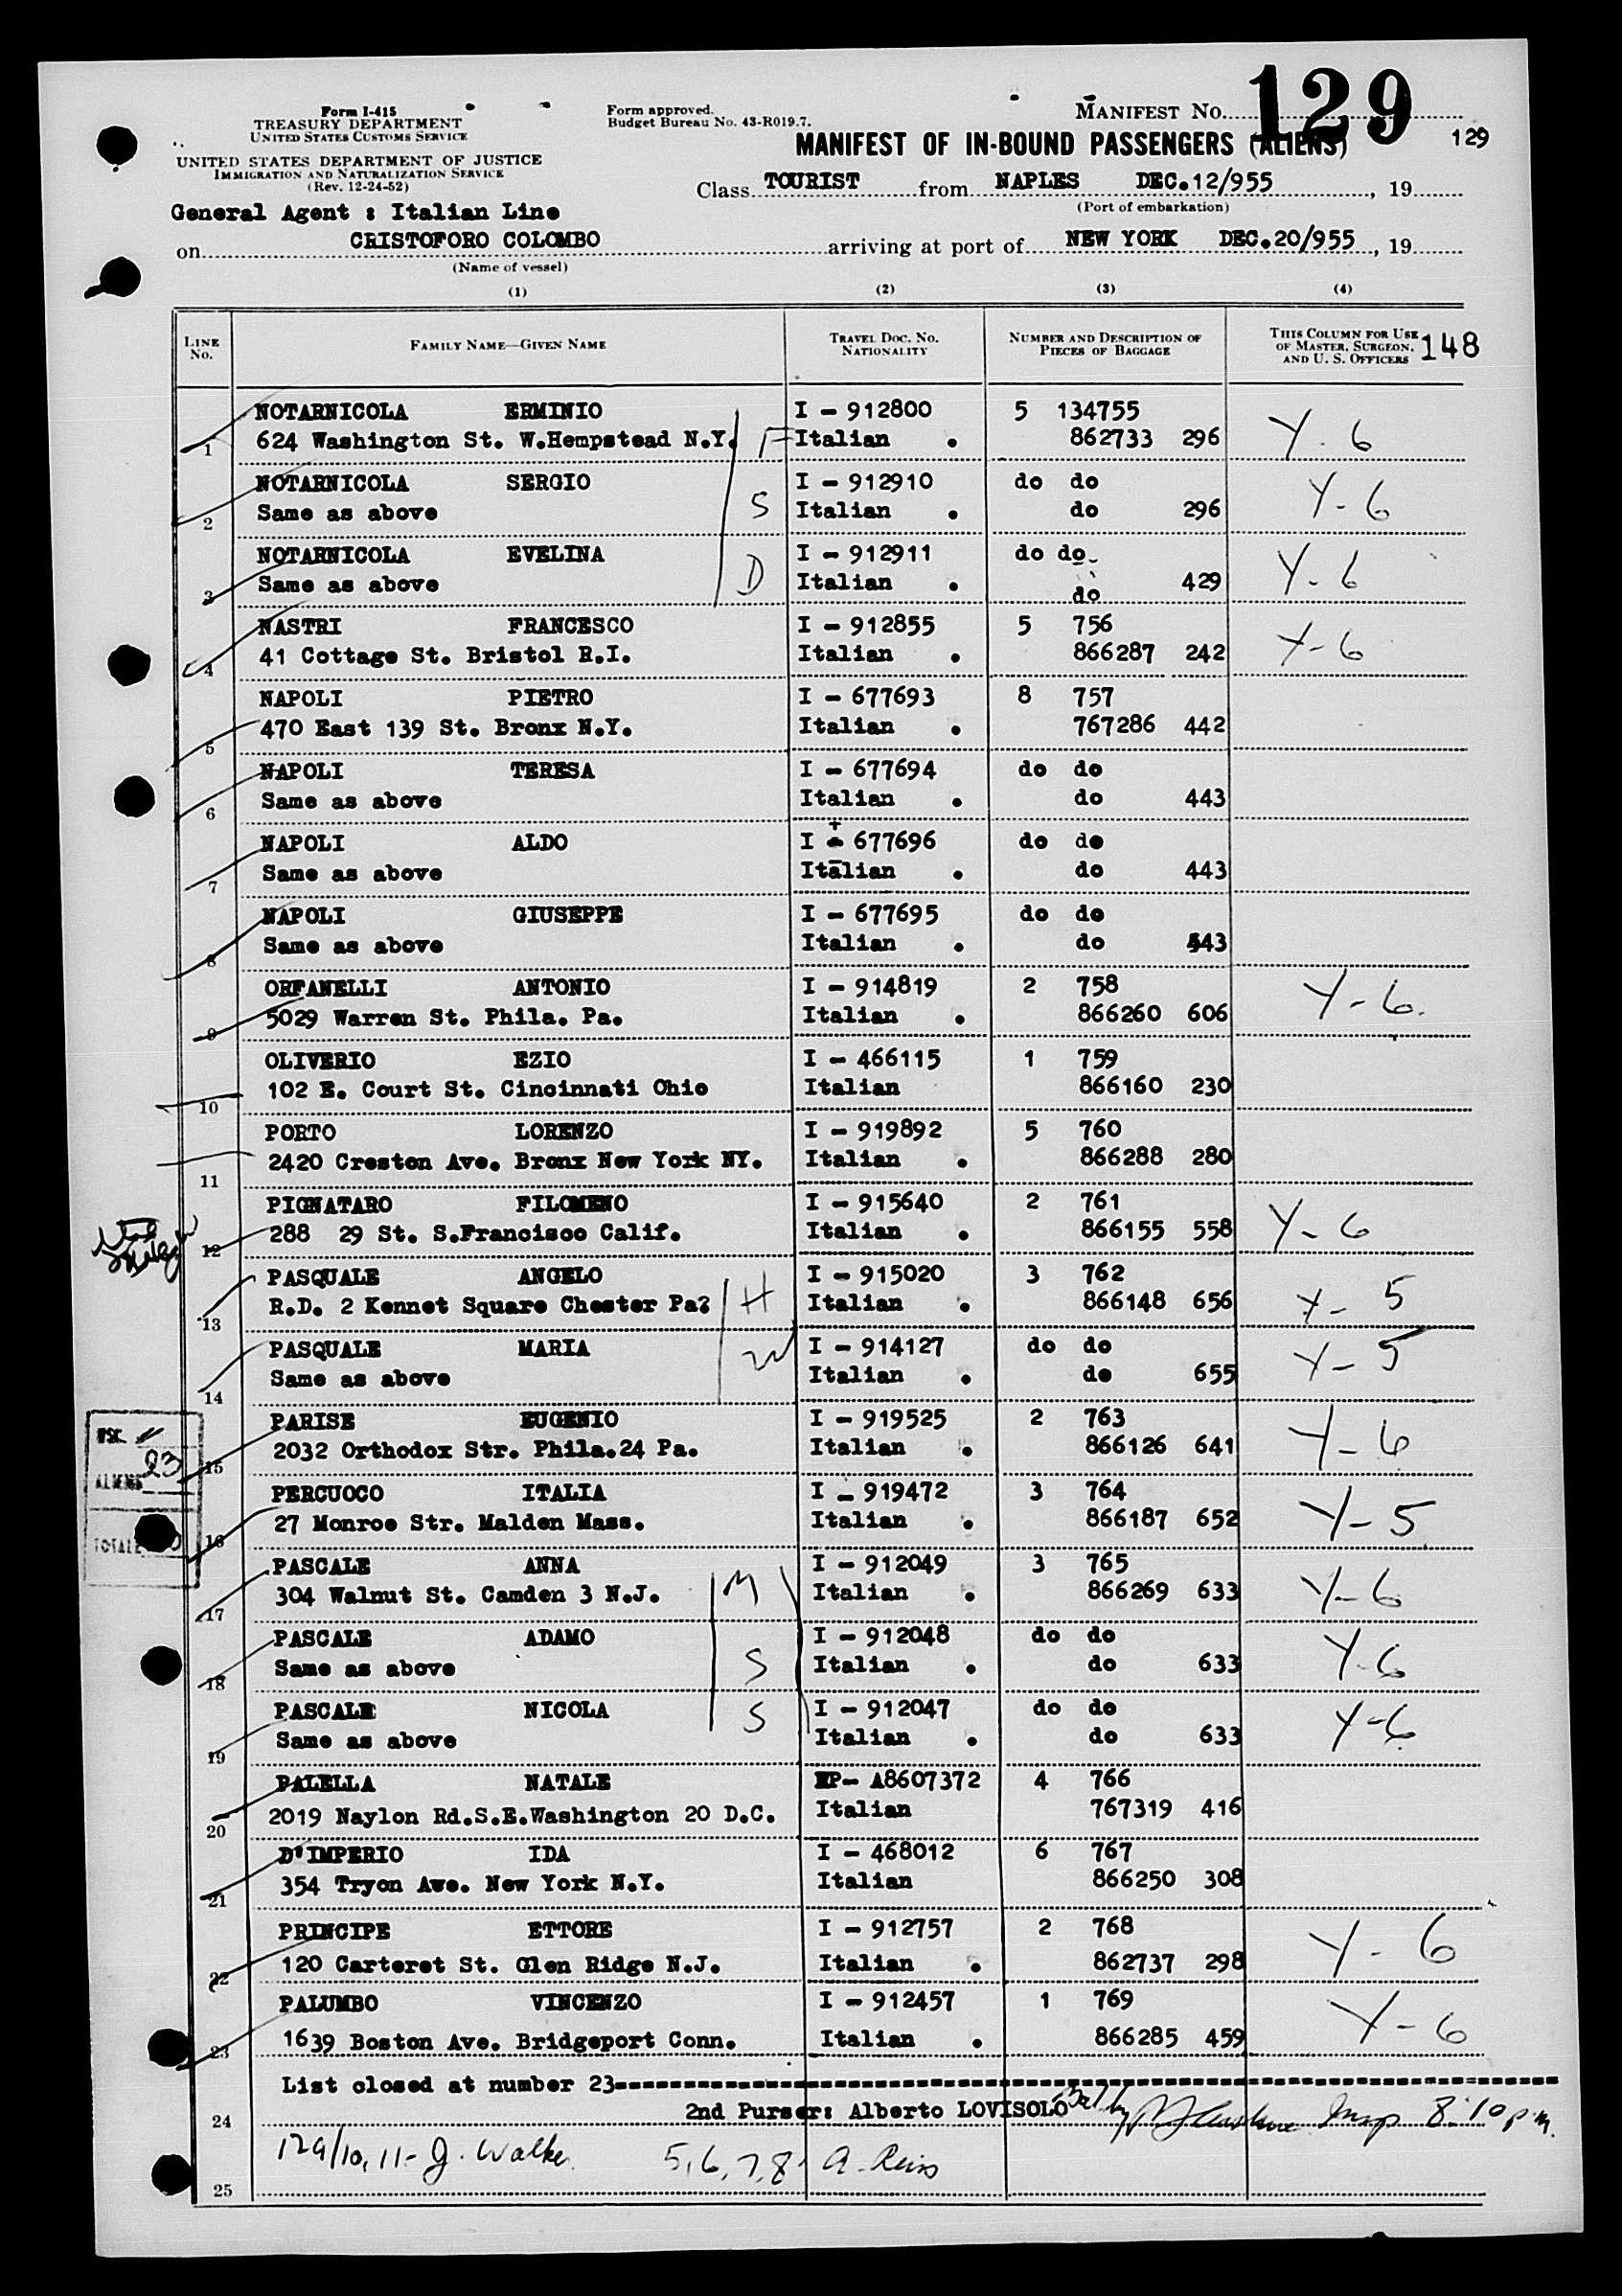 Form I-415
TREASURY DEPARTMENT
UNITED STATES CUSTOMS SERVICE
UNITED STATES DEPARTMENT OF JUSTICE
IMMIGRATION AND NATURALIZATION SERVICE
(Rev. 12-24-52)
Form approved.
Budget Bureau No. 43-R019.7.
MANIFEST NO. 129
MANIFEST OF IN-BOUND PASSENGERS (ALIENS) 129
Class TOURIST from NAPLES DEC.12/955, 19
(Port of embarkation)
General Agent : Italian Line
on CRISTOFORO COLOMBO arriving at port of NEW YORK DEC.20/955, 19
(Name of vessel)
(1) (2) (3) (4)
LINE NO. FAMILY NAME—GIVEN NAME TRAVEL DOC. NO. NATIONALITY NUMBER AND DESCRIPTION OF PIECES OF BAGGAGE THIS COLUMN FOR USE OF MASTER, SURGEON, AND U. S. OFFICERS 148
NOTARNICOLA ERMINIO I - 912800 5 134755
1 624 Washington St. W.Hempstead N.Y. F Italian . 862733 296 Y-6
NOTARNICOLA SERGIO I - 912910 do do
2 Same as above S Italian . do 296 Y-6
NOTARNICOLA EVELINA I - 912911 do do
3 Same as above D Italian . do 429 Y-6
NASTRI FRANCESCO I - 912855 5 756
4 41 Cottage St. Bristol R.I. Italian . 866287 242 Y-6
NAPOLI PIETRO I - 677693 8 757
5 470 East 139 St. Bronx N.Y. Italian . 767286 442
NAPOLI TERESA I - 677694 do do
6 Same as above Italian . do 443
NAPOLI ALDO I - 677696 do do
7 Same as above Italian . do 443
NAPOLI GIUSEPPE I - 677695 do do
8 Same as above Italian . do 543
ORFANELLI ANTONIO I - 914819 2 758
9 5029 Warren St. Phila. Pa. Italian . 866260 606 Y-6.
OLIVERIO EZIO I - 466115 1 759
10 102 E. Court St. Cincinnati Ohio Italian 866160 230
PORTO LORENZO I - 919892 5 760
11 2420 Creston Ave. Bronx New York NY. Italian . 866288 280
PIGNATARO FILOMENO I - 915640 2 761
12 288 29 St. S.Francisco Calif. Italian . 866155 558 Y-6
PASQUALE ANGELO I - 915020 3 762
13 R.D. 2 Kennet Square Chester Pa? H Italian . 866148 656 Y-5
PASQUALE MARIA I - 914127 do do
14 Same as above W Italian . do 655 Y-5
PARISE EUGENIO I - 919525 2 763
15 2032 Orthodox Str. Phila.24 Pa. Italian . 866126 641 Y-6
PERCUOCO ITALIA I - 919472 3 764
16 27 Monroe Str. Malden Mass. Italian . 866187 652 Y-5
PASCALE ANNA I - 912049 3 765
17 304 Walnut St. Camden 3 N.J. M Italian . 866269 633 Y-6
PASCALE ADAMO I - 912048 do do
18 Same as above S Italian . do 633 Y-6
PASCALE NICOLA I - 912047 do do
19 Same as above S Italian . do 633 Y-6
PALELLA NATALE EP- A8607372 4 766
20 2019 Naylon Rd.S.E.Washington 20 D.C. Italian 767319 416
D'IMPERIO IDA I - 468012 6 767
21 354 Tryon Ave. New York N.Y. Italian 866250 308
PRINCIPE ETTORE I - 912757 2 768
22 120 Carteret St. Glen Ridge N.J. Italian . 862737 298 Y-6
PALUMBO VINCENZO I - 912457 1 769
23 1639 Boston Ave. Bridgeport Conn. Italian . 866285 459 Y-6
USC
ALIENS 23
TOTAL
List closed at number 23
24 2nd Purser: Alberto LOVISOLO Bal by Insp 8:10 p.m.
129/10, 11 - J. Walker 5, 6, 7, 8 A. Reiss
25